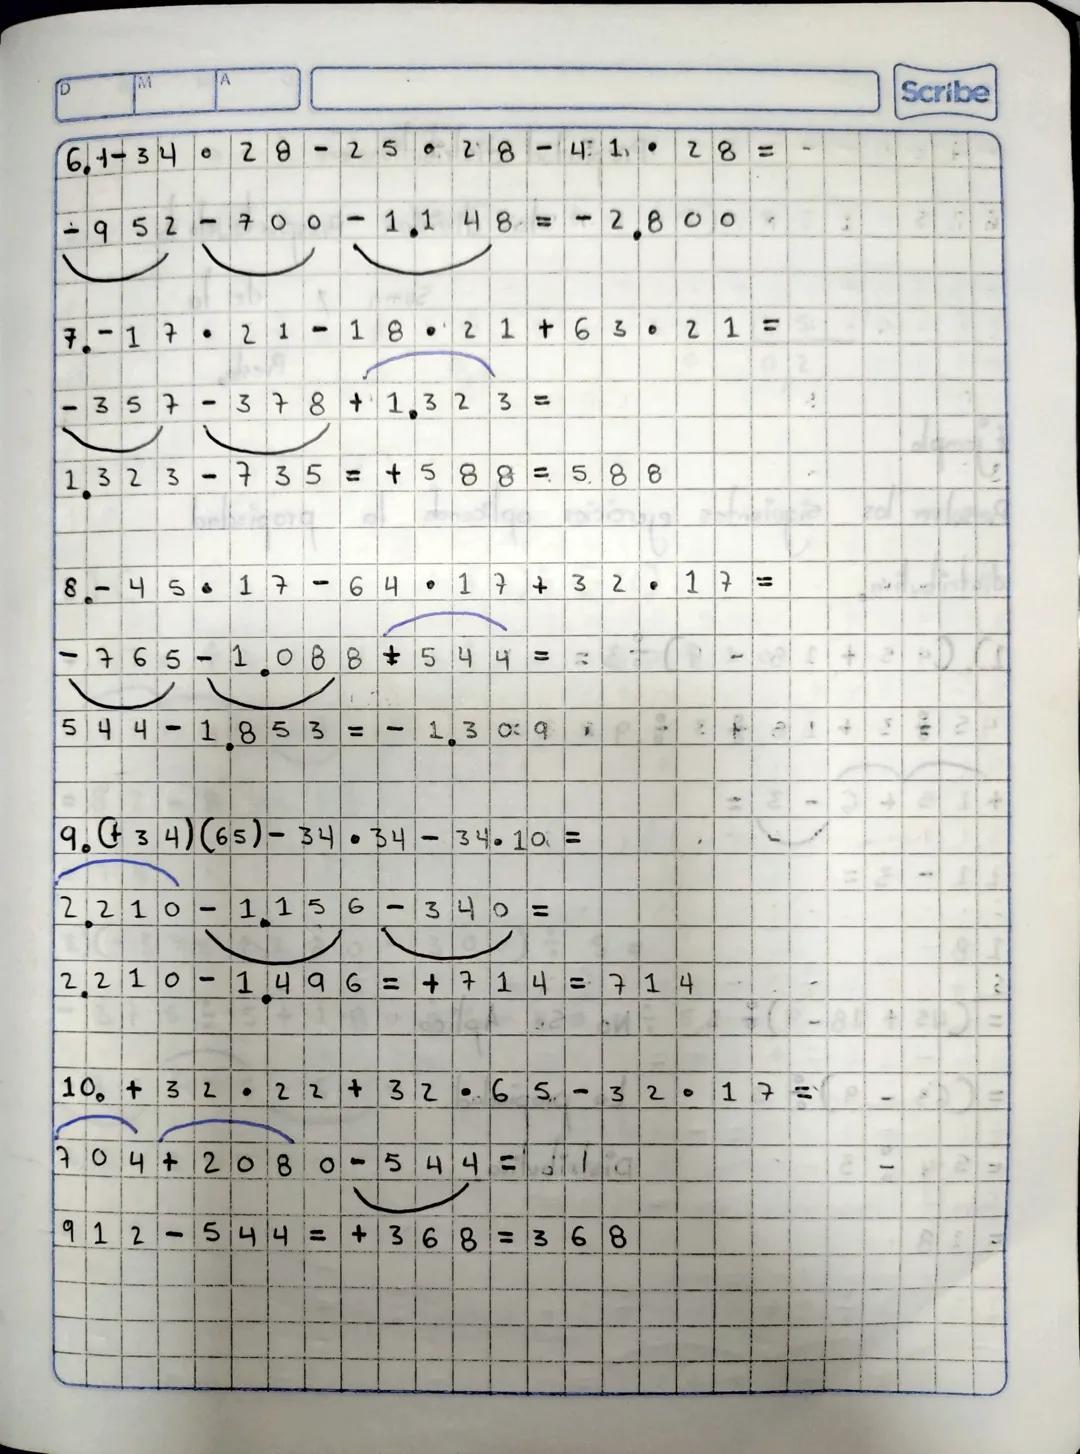 D M A
Scribe
6.+-34•28-25•28-41•28=
-952-700-1.148=-2.800
7.-17•21-18•21+63•21=
-357-378+1.323=
1.323-735=+588=588
8.-45•17-64•17+32•17=
-765-1.088+544=
544-1.853=-1.309
9.(+34)(65)-34•34-34•10=
2.210-1.156-340=
2.210-1.496=+714=714
10.+32•22+32•65-32•17=
704+2080-544=
912-544=+368=368